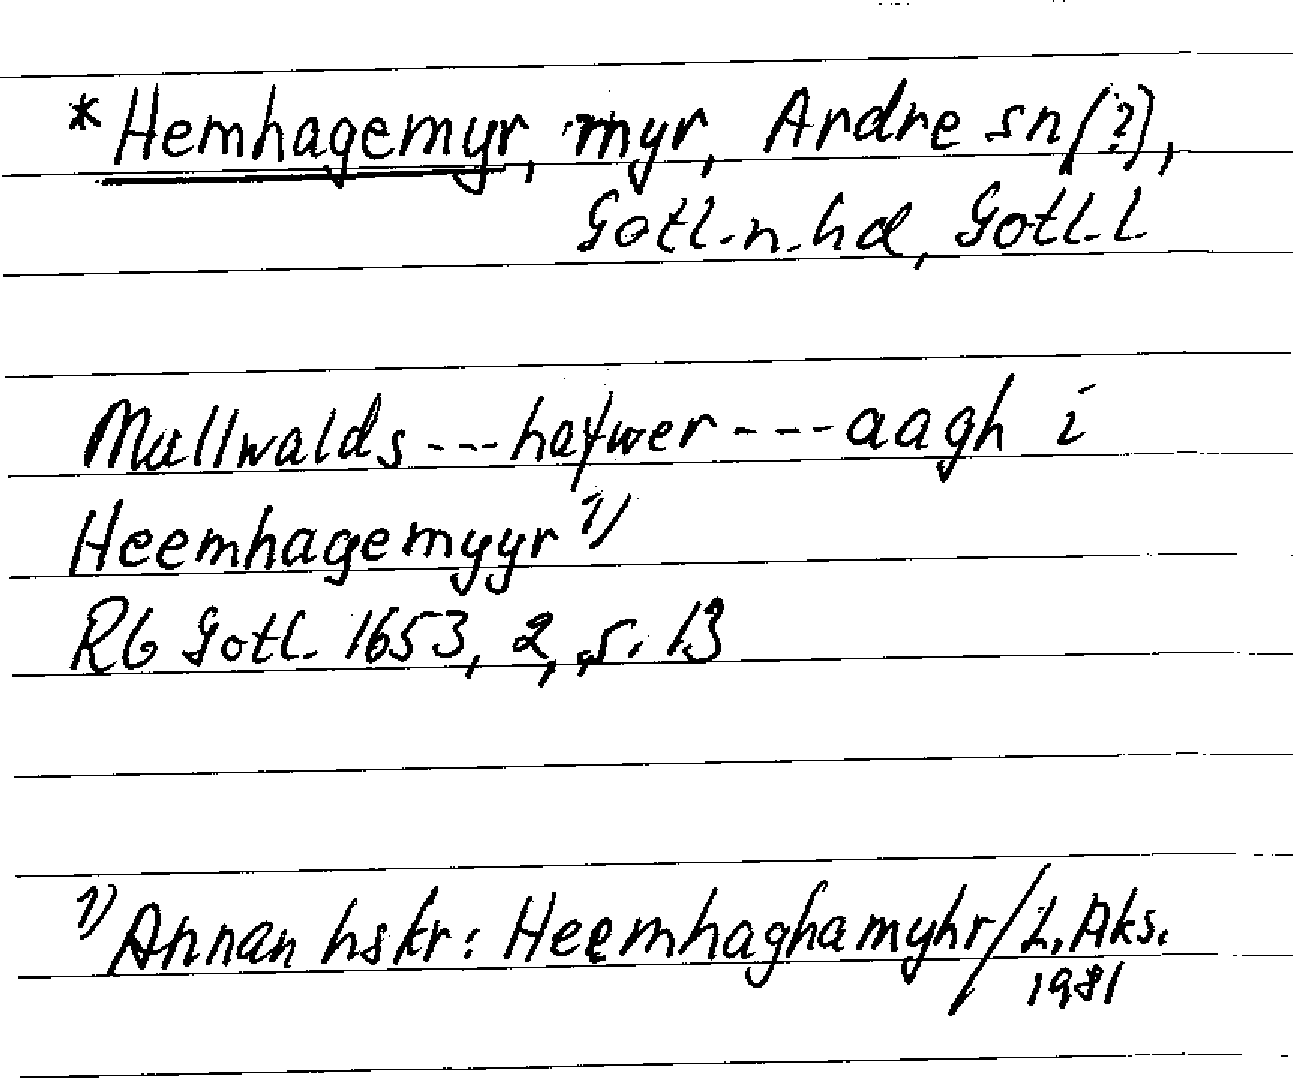 *Hemhagemyr, myr, Ardre sn(?),
Gotl. n. hd, Gotl. L
Mullwalds---hafwer---aagh i
Heemhagemyyr 1)
RG Gotl. 1653, 2, s. 13
1) Annan hskr: Heemhaghamyhr/L. Aks.
1981